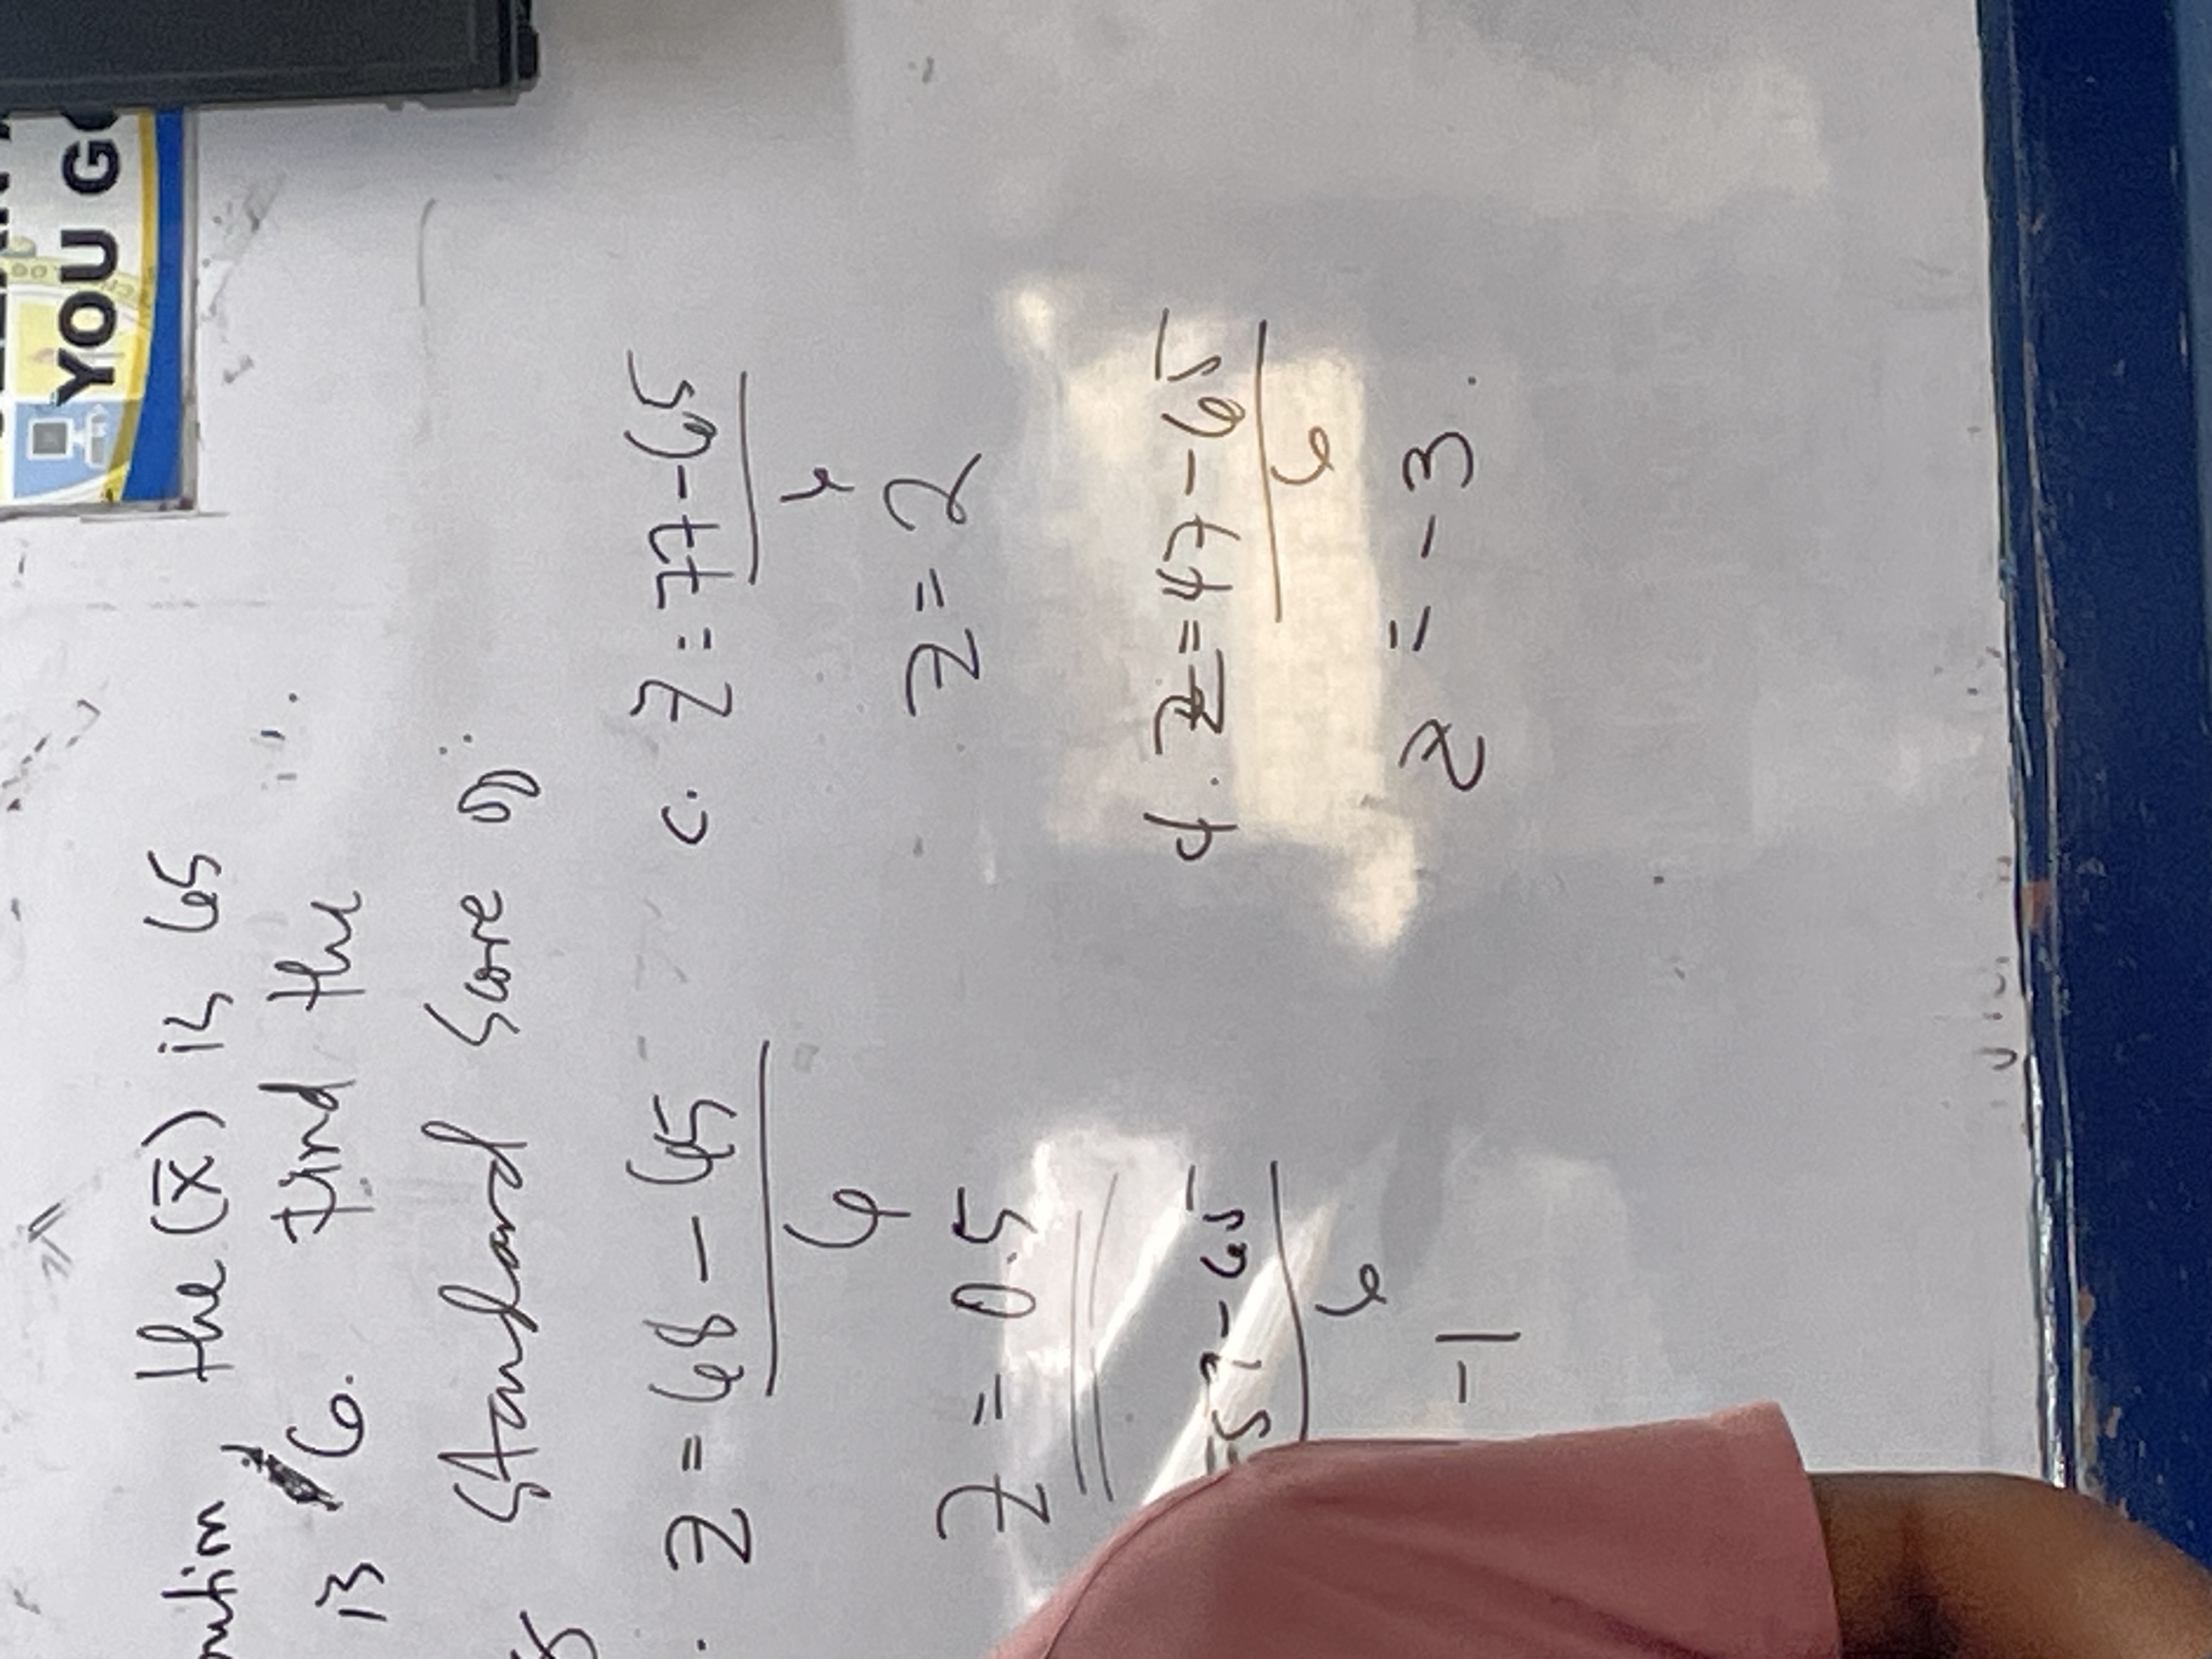 YOU G
the (x̄) is 65
is 6. Find the
Standard Score of:
Z = 68 - 65
6
Z = 0.5
57 - 65
6
-1
c. Z = 77-65
6
Z = 2
d. Z = 47 - 65
6
Z = -3.